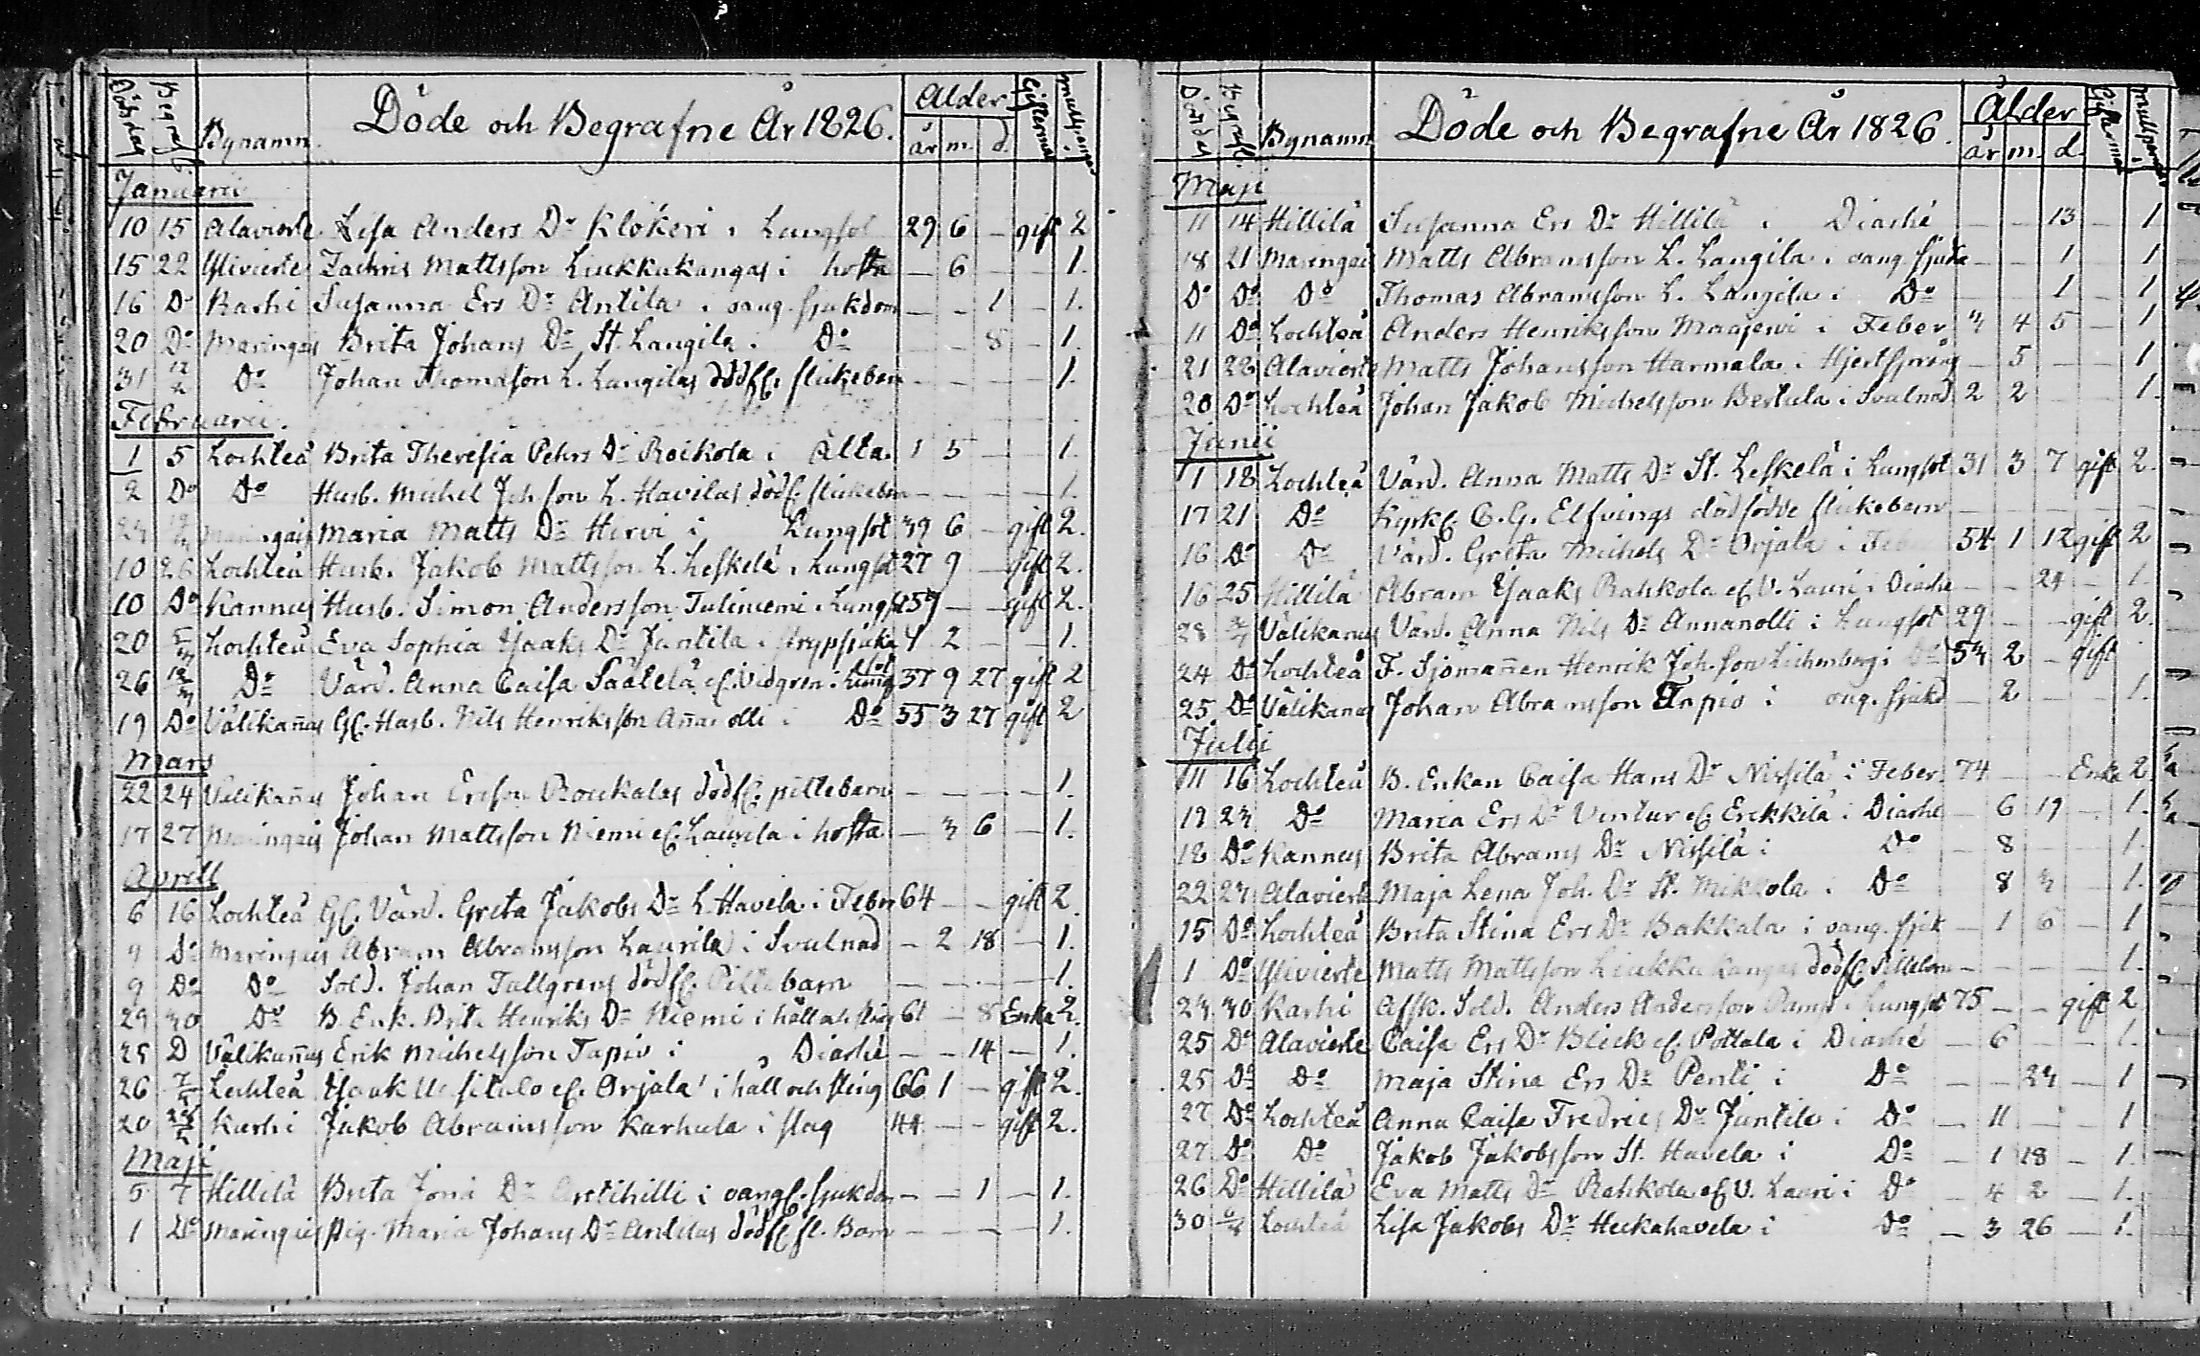 Dödsdag Begrafd Bynamn Döde och Begrafne År 1826. Ålder år m. d. Giftermål
Januarii
10 15 Alavierte Lisa Anders Dr Klökeri i Lungsot 29 6 – gift 2
15 22 Ylivierte Zachris Mattsson Liukkukangas i hosta – 6 – – 1.
16 Do Karhi Susanna Ers Dr Antila i oang. sjukdom – – 1 – 1.
20 Do Maringais Brita Johans Dr St. Langila i Do – – 8 – 1.
31 12/2 Do Johan Thomasson L. Langilas dödf. flickebarn – – – – 1.
Februarii.
1 5 Lochteå Brita Theresia Pehrs Dr Roikola i Älta 1 5 – – 1.
2 Do Do Husb. Michel Joh.son L. Havilas dödf. flickebarn – – – – 1.
23 Maringais Maria Matts Dr Hirvi i Lungsot 39 6 – gift 2.
10 26 Lochteå Husb. Jakob Mattsson L. Leskelä i Lungsot 27 9 – gift 2.
10 Do Kannus Husb. Simon Andersson Tuliniemi i Lungsot – – gift 2.
20 5/3 Lochteå Eva Sophia Isaaks Dr Juntila i Strypsjuka 4 2 – – 1.
26 12/3 Do Värd. Anna Caisa Säälelä ef. Vidgren i Lungsot 37 9 27 gift 2
19 Do Välikañus Gl. Husb. Nils Henriksson Añanolli i Do 55 3 27 gift 2
Mars
22 24 Välikañus Johan Ersson Roukalas dödf. piltebarn – – – – 1.
17 27 Maringais Johan Mattsson Niemi ef. Laurila i hosta – 3 6 – 1.
Aprill
6 16 Lochteå Gl. Värd. Greta Jakobs Dr L. Havela i Feber 64 – – gift 2.
9 Do Maringais Abram Abramsson Laurila i Svulnad – 2 18 – 1.
9 Do Do Sold. Johan Tallgrens dödf. Piltebarn – – – – 1.
29 30 Do B. Enk. Brit. Henriks Dr Niemi i håll och sting 61 – 8 Enka 2.
25 D Välikañus Erik Michelsson Tapio i Diarhé – – 14 – 1.
26 7/5 Lochteå Isaak Uusitalo ef. Orjala i håll och sting 66 1 – gift 2.
20 Karhi Jakob Abramsson Karhula i slag 44 – – gift 2.
Maji
5 7 Hillilä Brita Joni Dr Anttihilli i oang. sjukdom – – 1 – 1.
1 Do Maringais Pig. Maria Johans Dr Antilas dödf. fl. Barn – – – – 1.
Dödsdag Begrafd. Bynamn Döde och Begrafne År 1826. Ålder år m. d. Giftermål
Maji
11 14 Hillilä Susanna Ers Dr Hillilä i Diarhé – – 13 – 1.
18 21 Maringais Matts Abramsson L. Langila i oang. sjukd – – 1 1
Do Do Do Thomas Abramsson L. Langila i Do – – 1 – 1
11 Do Lochteå Anders Henriksson Maajervi i Feber 3 4 5 – 1
21 22 Alavierte Matts Johansson Harmala i Hjertsprång – 5 – – 1
20 Do Lochteå Johan Jakob Michelsson Bertula i Svulnad 2 2 1.
Junii
11 18 Lochteå Värd. Anna Matts Dr St. Leskelä i Lungsot 31 3 7 gift 2.
17 21 Do Kyrkh. C. G. Elfvings dödfödde flickebarn – – – – –
16 Do Do Värd. Greta Michels Dr Orjala i Feber 54 1 12 gift 2
16 25 Hillilä Abram Isaaks Rahkola ef. V. Lauri i Diarhe – – 24 – 1.
28 2/7 Välikanus Värd. Anna Nils Dr Annanolli i Lungsot 29 – – gift 2
24 Do Lochteå F. Sjömañen Henrik Joh.son Lichenberg i Do 53 2 – gift
25 Do Välikanus Johan Abramsson Tapio i oang. sjukd – 2 – – 1.
Julii
11 16 Lochteå B. Enkan Caisa Hans Dr Nissilä i Feber 74 – – Enka 2
19 23 Do Maria Ers Dr Vintur ef. Erkkilä i Diarhe – 6 19 – 1.
18 Do Kannus Brita Abrams Dr Nissilä i Do – 8 – 1.
22 23 Alavierte Maja Lena Joh. Dr St. Mikkola i Do 8 3 – 1.
15 Do Lochteå Brita Stina Ers Dr Bakkala i oang. sjuk – 1 6 – 1
1 Do Ylivierte Matts Mattsson Liukkukangas dödf. Piltebarn – – – – 1.
23 30 Karhi Afsk. Sold. Anders Andersson Pamp i Lungsot 75 – – gift 2
25 Do Alavierte Caisa Ers Dr Bleck ef. Pottala i Diarhé – 6 – – 1.
25 Do Do Maja Stina Ers Dr Penti i Do – – 23 – 1
27 Do Lochteå Anna Caisa Fredrics Dr Juntila i Do – 11 – – 1
27 Do Do Jakob Jakobsson St. Havela i Do – 1 18 – 1.
26 Do Hillilä Eva Matts Dr Rahkola ef. V. Lauri i Do – 4 2 – 1.
30 6/8 Lochteå Lisa Jakobs Dr Heikahavela i Do – 3 26 – 1.